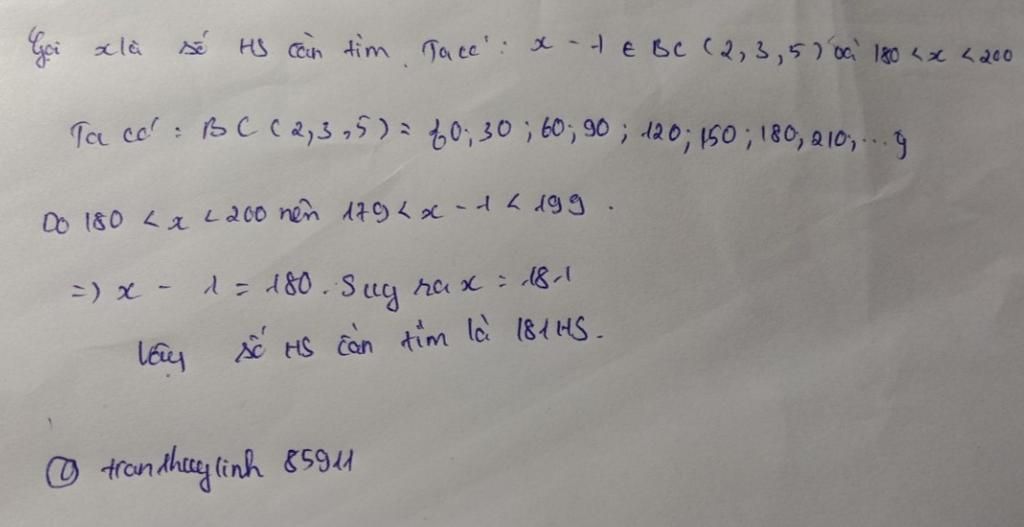 Gọi x là số HS cần tìm. Ta có: x - 1 ∈ BC (2, 3, 5) và 180 < x < 200
Ta có: BC (2, 3, 5) = {0; 30; 60; 90; 120; 150; 180; 210; ...}
Do 180 < x < 200 nên 179 < x - 1 < 199.
=> x - 1 = 180. Suy ra x = 181
Vậy số HS cần tìm là 181 HS.
tranthuylinh 85911